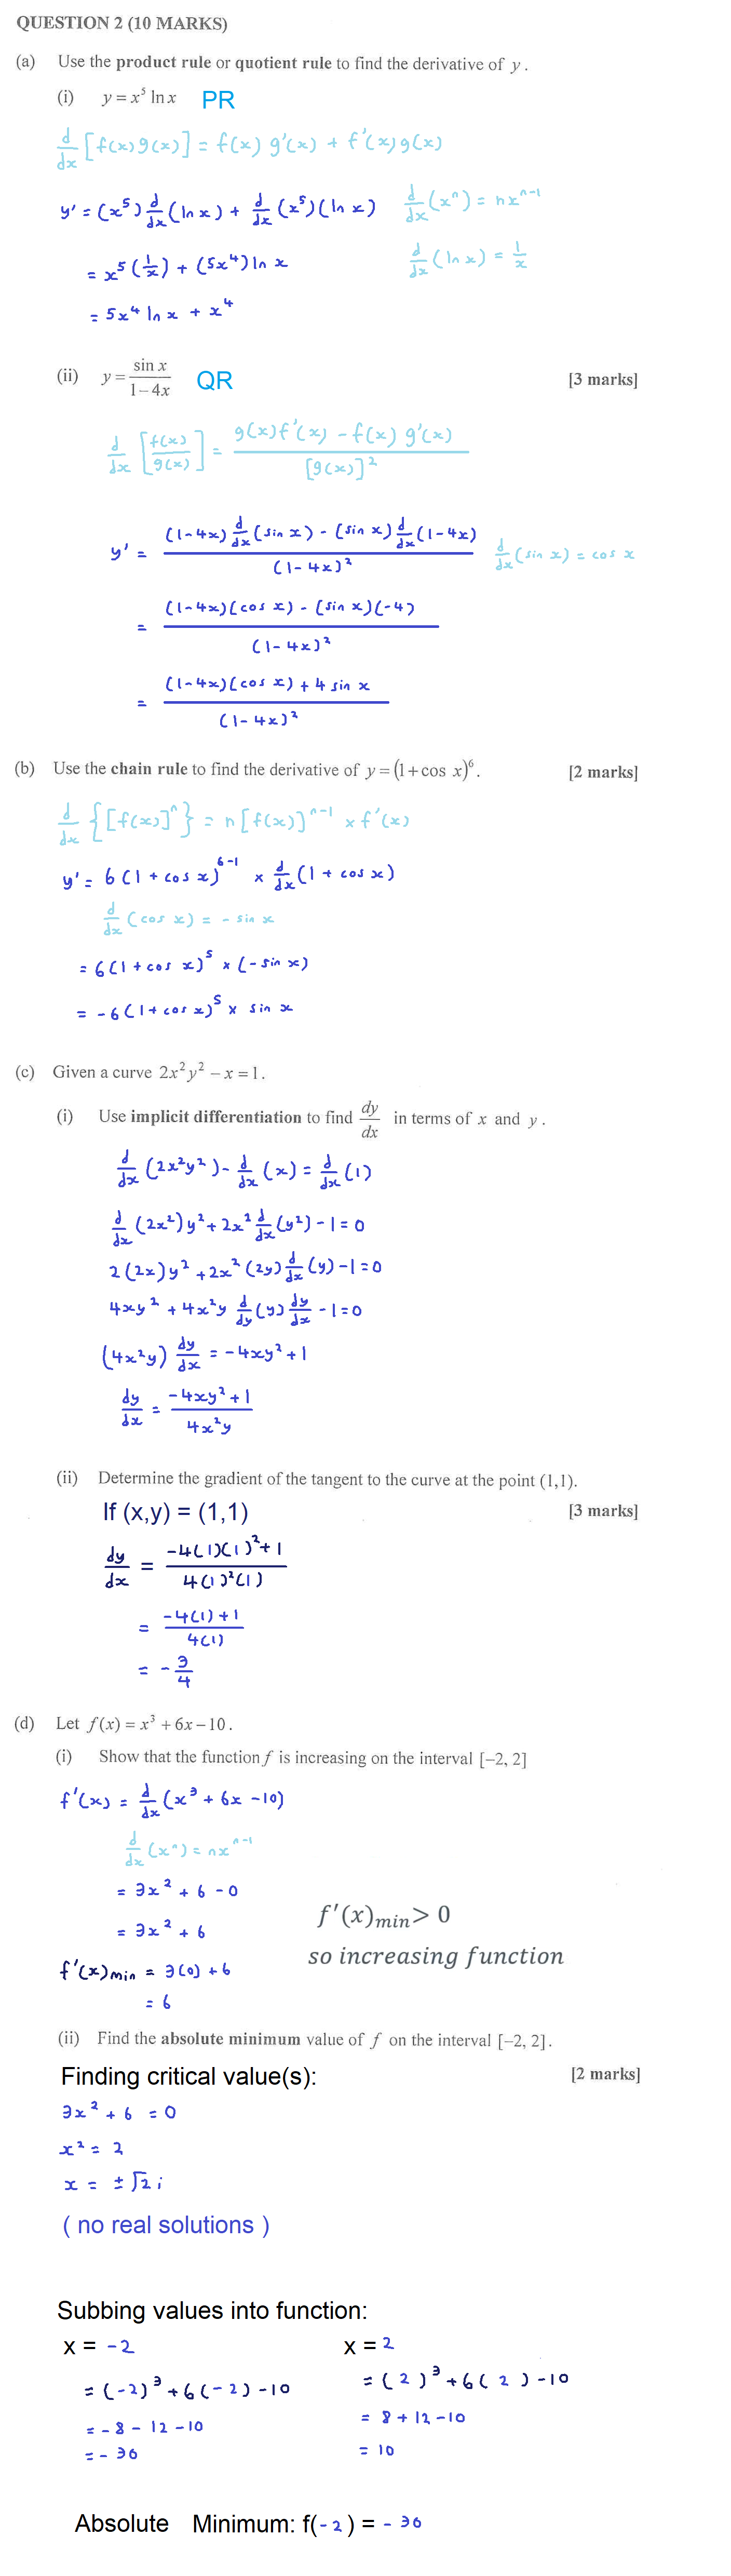 QUESTION 2 (10 MARKS)
(a) Use the product rule or quotient rule to find the derivative of y.
(i) y = x⁵ ln x PR
d/dx [f(x)g(x)] = f(x) g'(x) + f'(x)g(x)
y' = (x⁵) d/dx (ln x) + d/dx (x⁵)(ln x) d/dx (xⁿ) = nxⁿ⁻¹
= x⁵ (1/x) + (5x⁴) ln x d/dx (ln x) = 1/x
= 5x⁴ ln x + x⁴
(ii) y = sin x / (1 − 4x) QR [3 marks]
d/dx [f(x)/g(x)] = (g(x)f'(x) − f(x) g'(x)) / [g(x)]²
y' = ((1−4x) d/dx (sin x) − (sin x) d/dx (1−4x)) / (1−4x)² d/dx (sin x) = cos x
= ((1−4x)(cos x) − (sin x)(−4)) / (1−4x)²
= ((1−4x)(cos x) + 4 sin x) / (1−4x)²
(b) Use the chain rule to find the derivative of y = (1 + cos x)⁶. [2 marks]
d/dx {[f(x)]ⁿ} = n[f(x)]ⁿ⁻¹ × f'(x)
y' = 6(1 + cos x)⁶⁻¹ × d/dx (1 + cos x)
d/dx (cos x) = − sin x
= 6(1 + cos x)⁵ × (− sin x)
= −6(1 + cos x)⁵ × sin x
(c) Given a curve 2x²y² − x = 1.
(i) Use implicit differentiation to find dy/dx in terms of x and y.
d/dx (2x²y²) − d/dx (x) = d/dx (1)
d/dx (2x²)y² + 2x² d/dx (y²) − 1 = 0
2(2x)y² + 2x²(2y) d/dx (y) − 1 = 0
4xy² + 4x²y d/dy (y) dy/dx − 1 = 0
(4x²y) dy/dx = −4xy² + 1
dy/dx = (−4xy² + 1) / 4x²y
(ii) Determine the gradient of the tangent to the curve at the point (1,1).
If (x,y) = (1,1) [3 marks]
dy/dx = (−4(1)(1)² + 1) / 4(1)²(1)
= (−4(1) + 1) / 4(1)
= − 3/4
(d) Let f(x) = x³ + 6x − 10.
(i) Show that the function f is increasing on the interval [−2, 2]
f'(x) = d/dx (x³ + 6x − 10)
d/dx (xⁿ) = nxⁿ⁻¹
= 3x² + 6 − 0
f'(x)min > 0
= 3x² + 6
so increasing function
f'(x)min = 3(0) + 6
= 6
(ii) Find the absolute minimum value of f on the interval [−2, 2].
Finding critical value(s): [2 marks]
3x² + 6 = 0
x² = 2
x = ± √2 i
( no real solutions )
Subbing values into function:
x = −2 x = 2
= (−2)³ + 6(−2) − 10 = (2)³ + 6(2) − 10
= −8 − 12 − 10 = 8 + 12 − 10
= −30 = 10
Absolute Minimum: f(−2) = −30